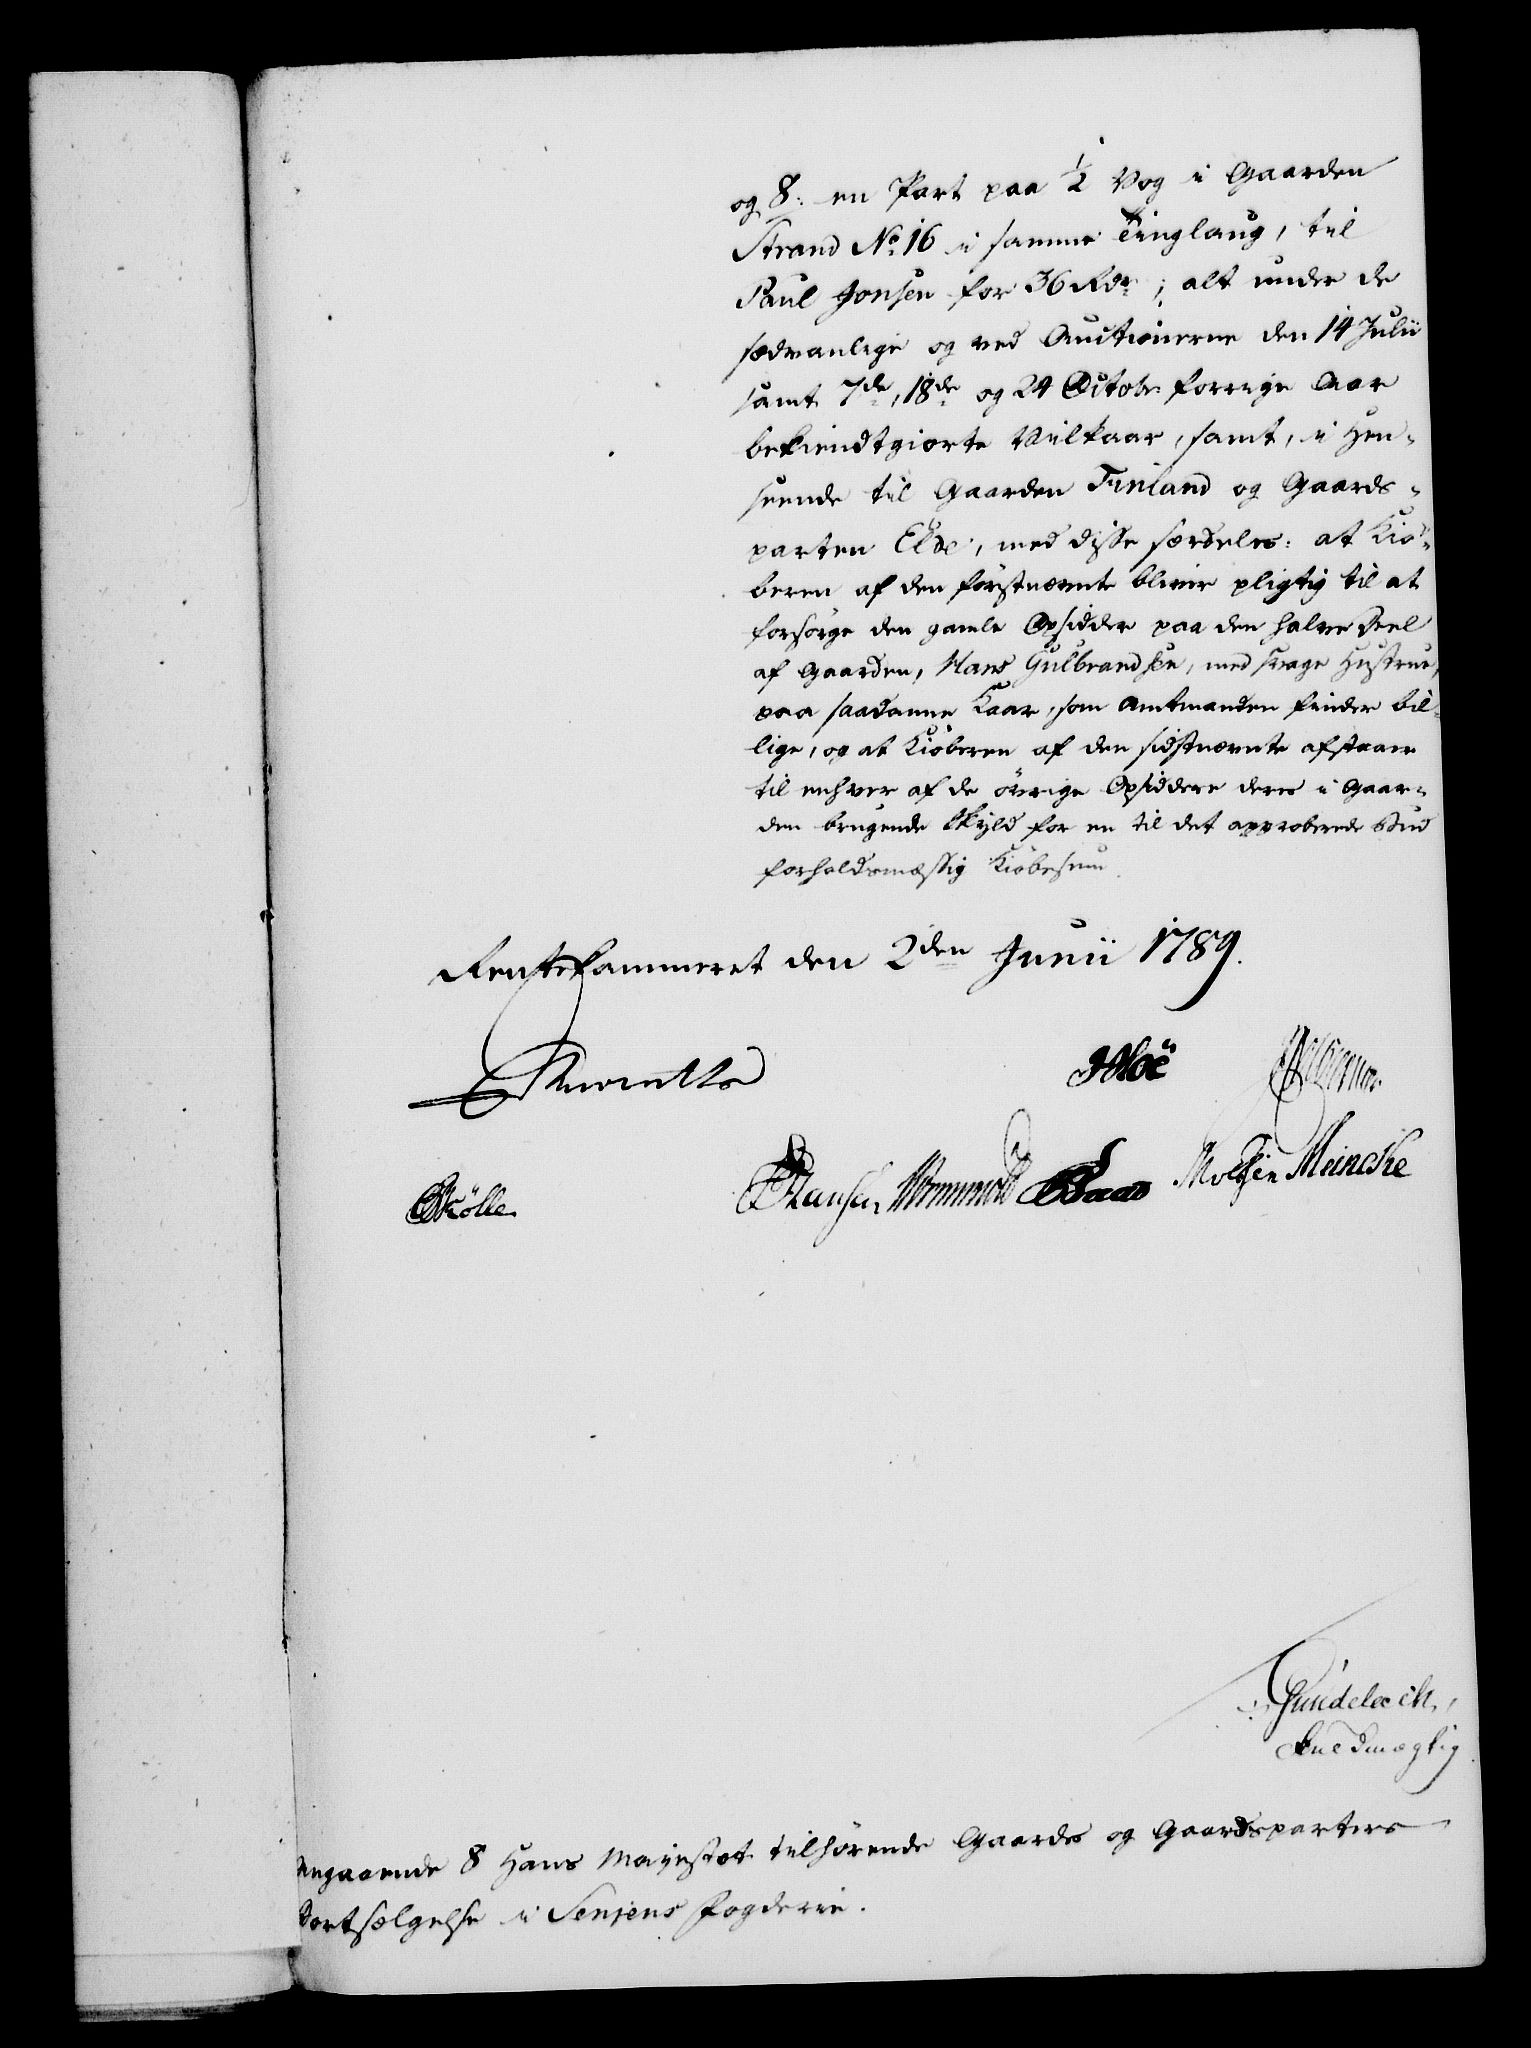 og 8: en Part paa ½ Vog i Gaarden
Strand No 16 i samme Tinglaug, til
Paul Jonsen for 36 Rdr; alt under de
sædvanlige og ved Auctionerne den 14 Julii
samt 7de, 18de og 24 Octobr: forrige Aar
bekiendtgiorte Vilkaar, samt, i Hen-
seende til Gaarden Finland og Gaards-
parten Elde, med disse særdeles: at Kiö-
beren af den förstnævnte bliver pligtig til at
forsörge den gamle Opsidder paa den halve Deel
af Gaarden, Hans Gulbrandsen, med svage Hustrue,
paa saadanne Kaar, som Amtmanden finder bil-
lige, og at Kiöberen af den sidstnævnte afstaaer
til enhver af de övrige Opsiddere deres i Gaar-
den brugende Skyld for en til det approberede Bud
forholdsmæssig Kiöbesum.
Rentekammeret den 2den Junii 1789.
JHoë
Skölle
Hansen Wormskiold Baad Moltzen Meincke
Gundelach,
fuldmægtig
Angaaende 8 Hans Majestæt tilhörende Gaarde og Gaardsparters
Bortsælgelse i Senjens Fogderie.